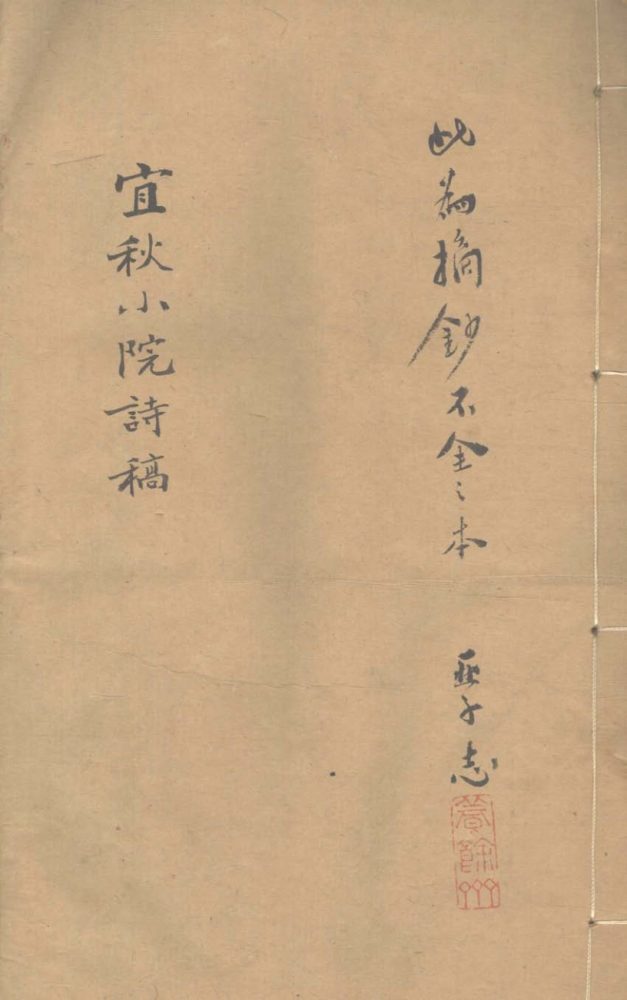 此為摘鈔不全之本
亞子志
養餘齋
宜秋小院詩稿